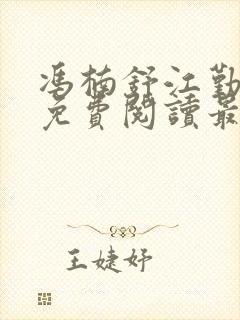 馮楠舒江勤
免費閱讀最
王婕妤